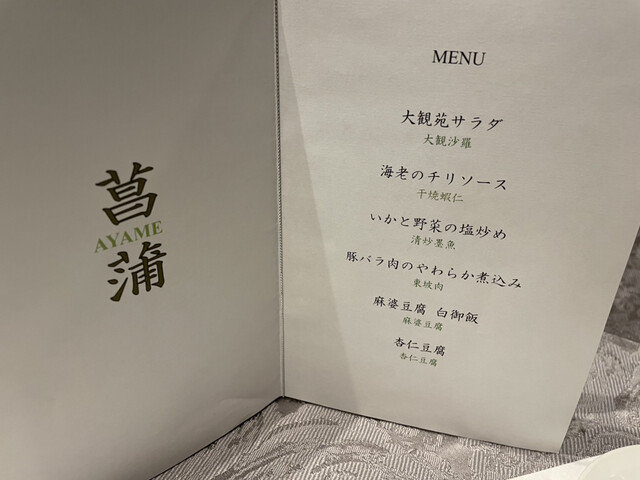 菖
AYAME
蒲
MENU
大観苑サラダ
大観沙羅
海老のチリソース
干焼蝦仁
いかと野菜の塩炒め
清炒墨魚
豚バラ肉のやわらか煮込み
東坡肉
麻婆豆腐 白御飯
麻婆豆腐
杏仁豆腐
杏仁豆腐